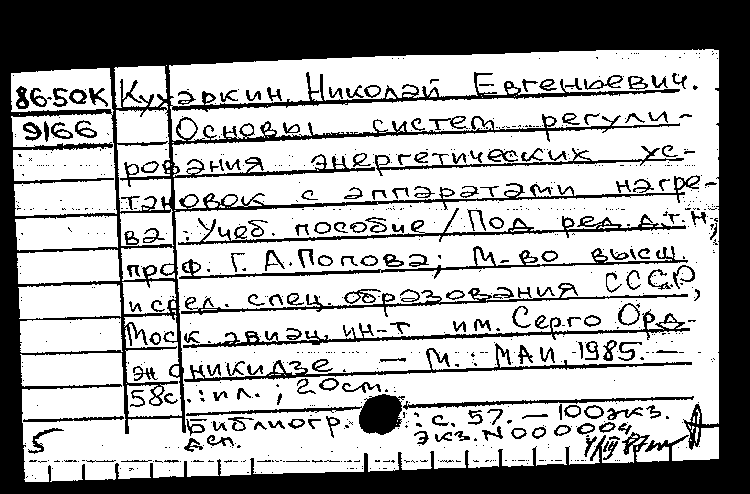 86-50К Кухаркин, Николай Евгеньевич.
9166 Основы систем регули-
рования энергетических ус-
тановок с аппаратами нагре-
ва : Учеб. пособие / Под ред. д.т.н.,
проф. Г. А. Попова; М-во высш.
и сред. спец. образования СССР,
Моск. авиац. ин-т им. Серго Орд-
жоникидзе. — М. : МАИ, 1985. —
58с. : ил. ; 20см.
Библиогр. : с. 57. — 100экз.
5 дсп. экз. N 000004